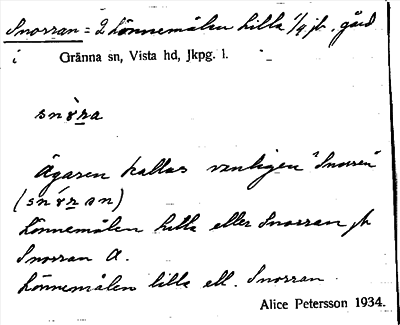 Snorran = 2 Lönnemålen lilla 1/4 jb. gård
i Gränna sn, Vista hd, Jkpg. l.
Ägaren kallas vanligen "Snorren"
Lönnemålen lilla eller Snorran jb
Snorran A.
Lönnemålen lilla ell. Snorran.
Alice Petersson 1934.